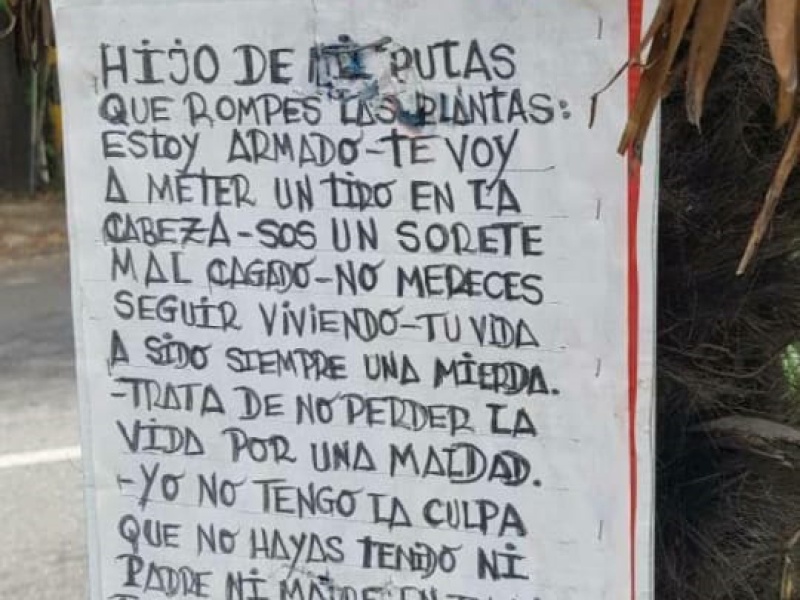 HIJO DE MI PUTAS
QUE ROMPES LAS PLANTAS:
ESTOY ARMADO-TE VOY
A METER UN TIDO EN LA
CABEZA-SOS UN SORETE
MAL CAGADO-NO MERECES
SEGUIR VIVIENDO-TU VIDA
A SIDO SIEMPRE UNA MIERDA.
-TRATA DE NO PERDER LA
VIDA POR UNA MALDAD.
-YO NO TENGO LA CULPA
QUE NO HAYAS TENIDO NI
PADRE NI MADRE EN